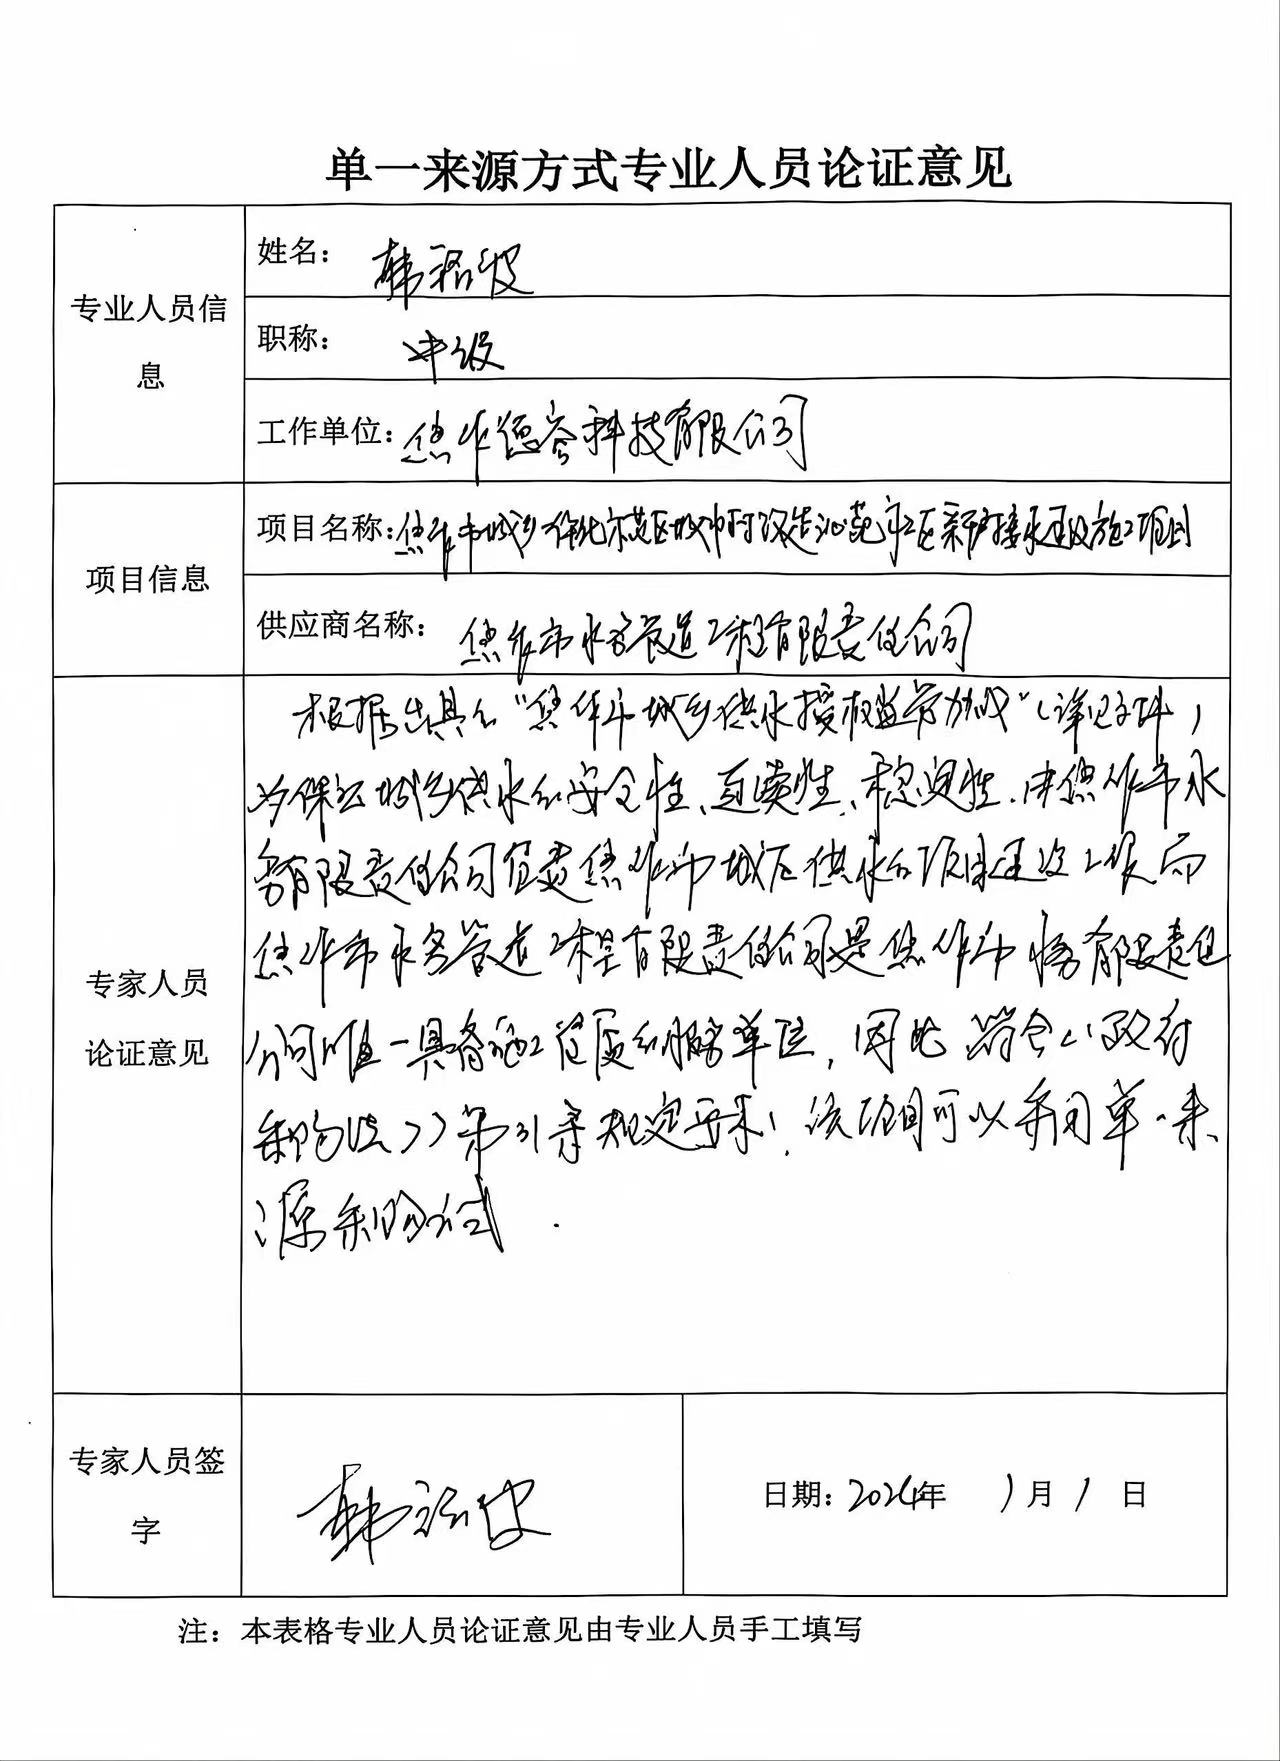 单一来源方式专业人员论证意见
专业人员信息
姓名：韩
职称：中级
工作单位：焦作德容科技有限公司
项目信息
项目名称：焦作市城乡一体化示范区城中村改造 新户接水建设施工项目
供应商名称：焦作市水务管道工程有限责任公司
专家人员论证意见
根据出具的“焦作市城乡供水授权监管协议”（详见文件），
为保证城乡供水的安全性、连续性、稳定性，由焦作市水
务有限责任公司负责焦作市城区供水的项目建设工程，而
焦作市水务管道工程有限责任公司是焦作市水务有限责任
公司唯一具备施工资质的 单位，因此，符合《政府
采购法》第31条规定要求，该项目可以采用单一来
源采购方式．
专家人员签字
韩
日期：2024年 1月 1 日
注：本表格专业人员论证意见由专业人员手工填写